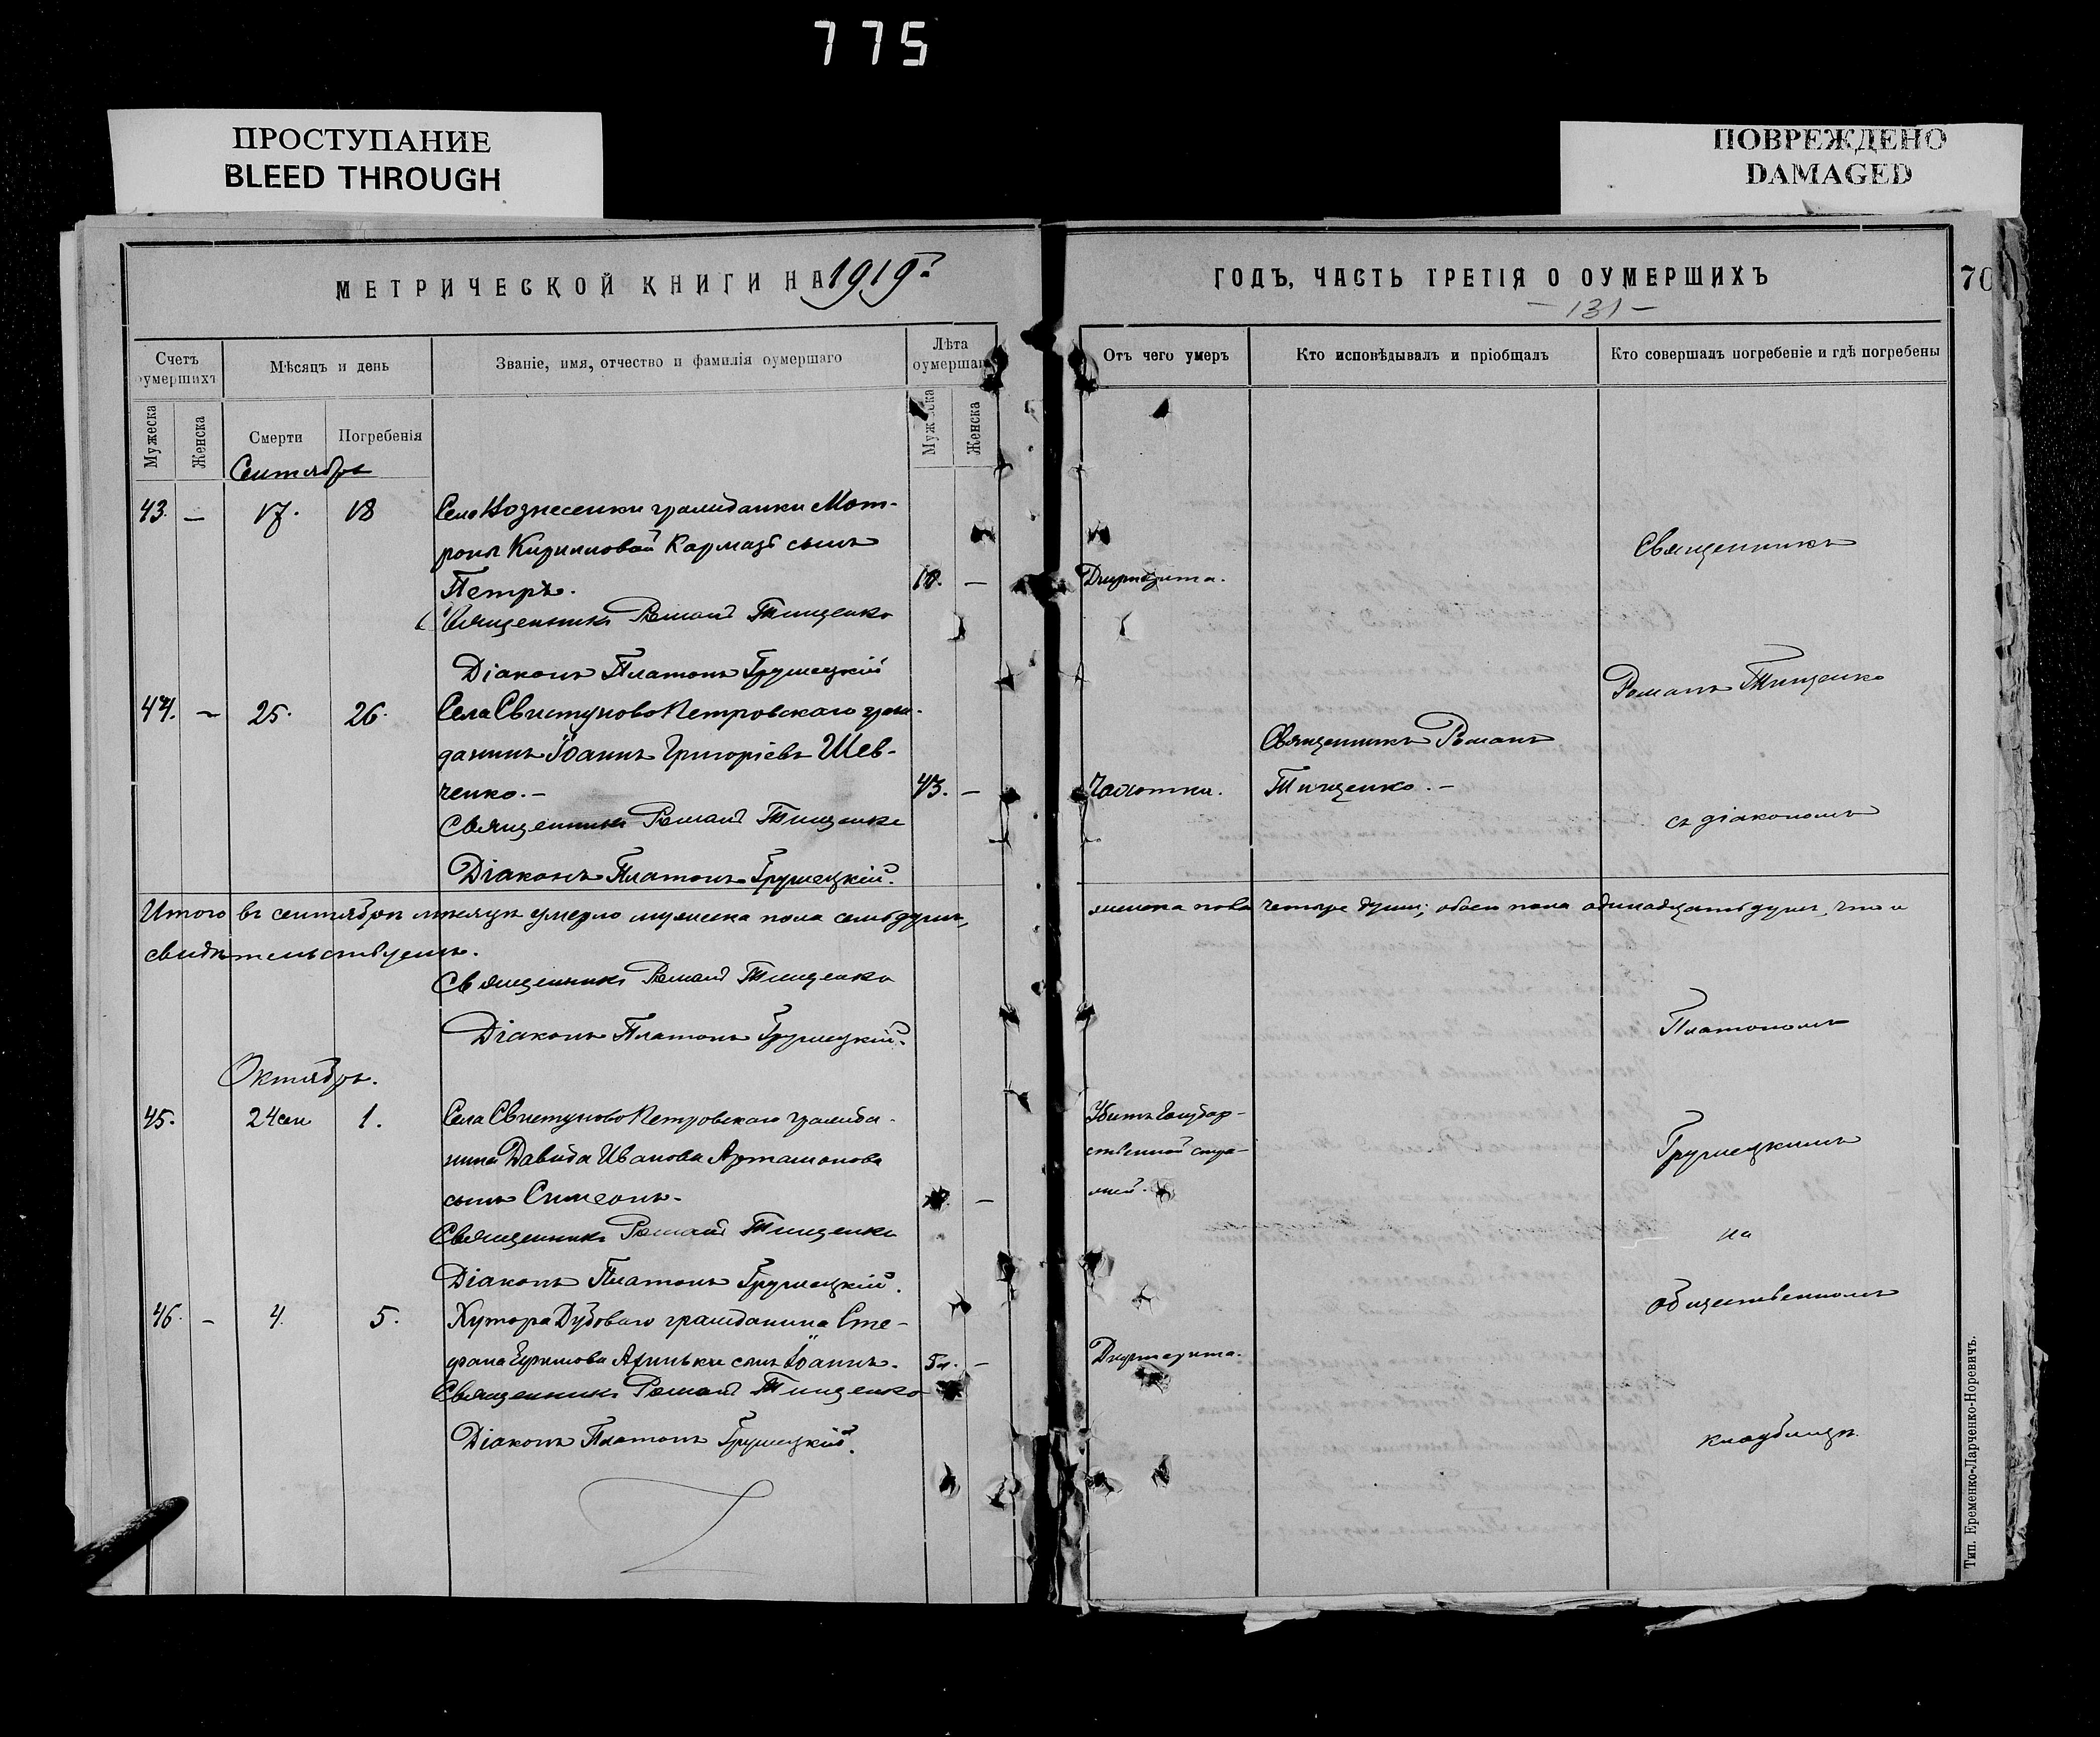 775
ПРОСТУПАНИЕ
BLEED THROUGH
ПОВРЕЖДЕНО
DAMAGED
МЕТРИЧЕСКОЙ КНИГИ НА 1919 г.
Счетъ оумершихъ
Мѣсяцъ и день
Званіе, имя, отчество и фамилія оумершаго
Лѣта оумершаго
Мужеска
Женска
Смерти
Погребенія
Мужеска
Женска
Сентябрь
43. — 17. 18 Села Вознесенки гражданки Мат-
роны Кирилловой Кармазь сынъ
Петръ. 10. —
Священникъ Романъ Тищенко
Діаконъ Платонъ Грушецкій
44. — 25. 26. Села Свистуново Петровскаго граж-
данинъ Іоаннъ Григоріевъ Шев-
ченко. — 43. —
Священникъ Романъ Тищенко
Діаконъ Платонъ Грушецкій.
Итого въ сентябрѣ мѣсяцѣ умерло мужеска пола семь душъ,
свидѣтельствуемъ.
Священникъ Романъ Тищенко
Діаконъ Платонъ Грушецкій.
Октябрь.
45. 24 сен 1. Села Свистуново Петровскаго гражда-
нина Давида Иванова Артамонова
сынъ Симеонъ. —
Священникъ Романъ Тищенко
Діаконъ Платонъ Грушецкій.
46. — 4. 5. Хутора Дубоваго гражданина Сте-
фана Ефимова сынъ Іоаннъ. 5 л. —
Священникъ Романъ Тищенко
Діаконъ Платонъ Грушецкій.
ГОДЪ, ЧАСТЬ ТРЕТІЯ О ОУМЕРШИХЪ
70
— 131 —
Отъ чего умеръ
Кто исповѣдывалъ и пріобщалъ
Кто совершалъ погребеніе и гдѣ погребены
Дифтерита.
Священникъ
Романъ Тищенко
Священникъ Романъ
Чахотки. Тищенко. —
съ діакономъ
женска пола четыре души; обоего пола одинадцать душъ, что и
Платономъ
Убитъ Государ-
ственной стра-
жей.
Грушецкимъ
на
общественномъ
Дифтерита.
кладбищѣ.
Тип. Еременко-Ларченко-Норевичъ.